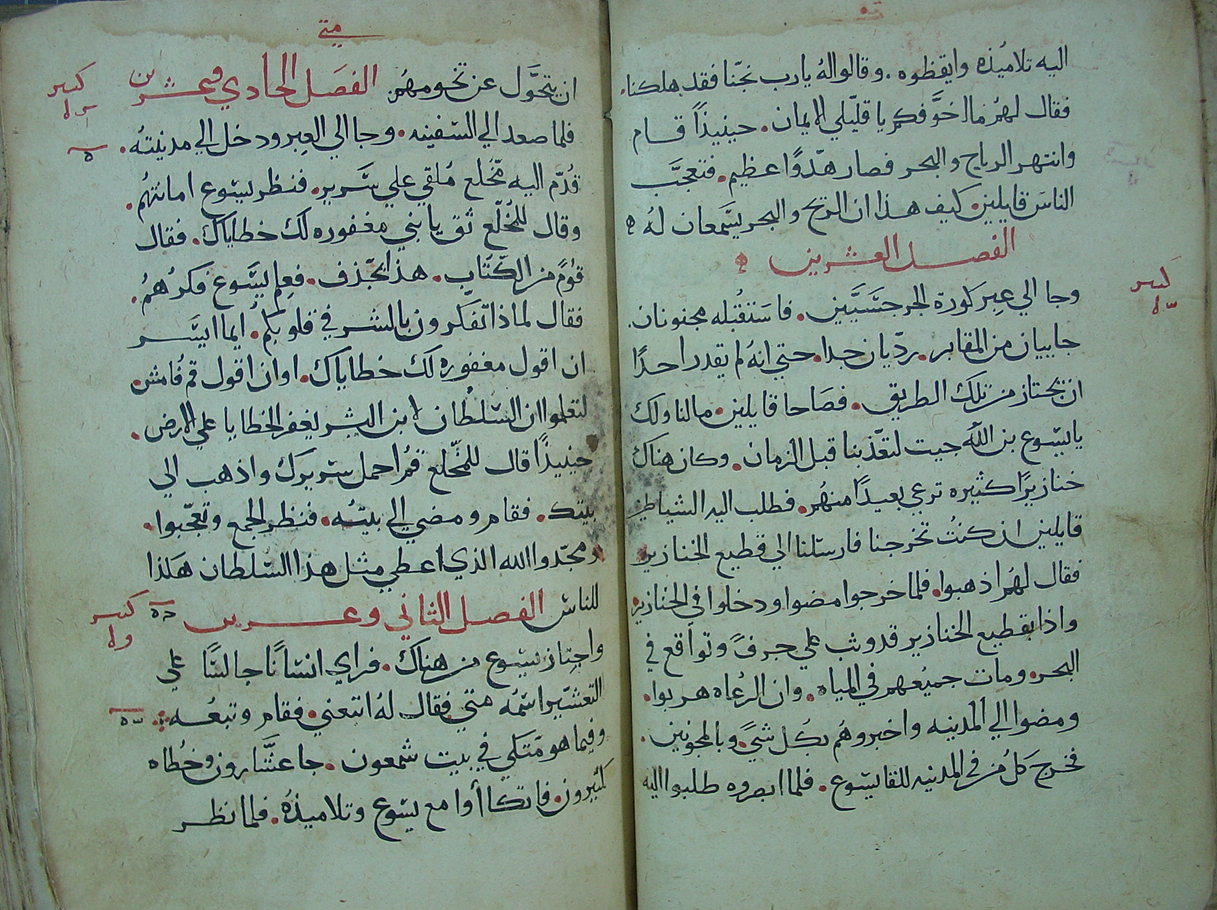 اليه تلاميذه وايقظوه . وقالوا له يارب نجّنا فقد هلكنا.
فقال لهم مالخوفكم يا قليلي الايمان . حينيذاً قام
وانتهر الرياح والبحر فصار هدوًا عظيم . فتعجّب
الناس قايلين كيف هذا ان الريح والبحر يسمعان لهُ
الفصل العشرين
كبير
وجا الي عبر كورة الجرجسيّين . فاستقبله مجنونان.
جاييان من المقابر . رديّان جدا . حتي انه لم يقدر احدًا
ان يجتاز من تلك الطريق . فصاحا قايلين . مالنا ولك
يايسوع بن الله جيت لتعذّبنا قبل الزمان . وكان هناك
خنازيرًا كثيره ترعي بعيدًا منهم . فطلب اليه الشياطين
قايلين ان كنت تخرجنا فارسلنا الي قطيع الخنازير
فقال لهم اذهبوا . فلما خرجوا مضوا ودخلوا في الخنازير
واذا بقطيع الخنازير قد وثب علي جرف وتواقع في
البحر . ومات جميعهم في المياة . وان الرعاه هربوا .
ومضوا الي المدينه واخبروهم بكل شيً . وبالمجنونين .
فخرج كل من في المدينه للقا يسوع . فلما ابصروه طلبوا اليه
متي
ان يتحوّل عن تخومهم . الفصل الحادي وعشرين
كبير
فلما صعد الي السفينه . وجا الي العبر ودخل الي مدينتهُ .
قدّم اليه مخلع مُلقي علي سرير . فنظر يسوع امانتهم .
وقال للمُخلّع ثق يا بني مغفوره لك خطاياك . فقال
قومٌ من الكتّاب . هذا يجذف . فعلم يسوع فكرهُم .
فقال لماذا تفكرون بالشر في قلوبكم . ايما ايسر
ان اقول مغفوره لك خطاياك . او ان اقول قم فامش .
لتعلموا ان السلطان لابن البشر ليغفر الخطايا علي الارض .
حينيذًا قال للمخّلع قم احمل سريرك واذهب الي
بيتك . فقام ومضي الي بيتهُ . فنظر الجمع وتعجّبوا .
ومجّدوا الله الذي اعطي مثل هذا السلطان هكذا
للناس الفصل الثاني وعشرين
كبير
واجتاز يسوع من هناك . فراي انسانًا جالسًا علي
التعشير اسمُه متي فقال لهُ اتبعني . فقام وتبعُه
وفيما هو متكي في بيت شمعون . جا عشّارون وخُطاه
كثيرون . فاتكااوا مع يسوع وتلاميذهُ . فلما نظر